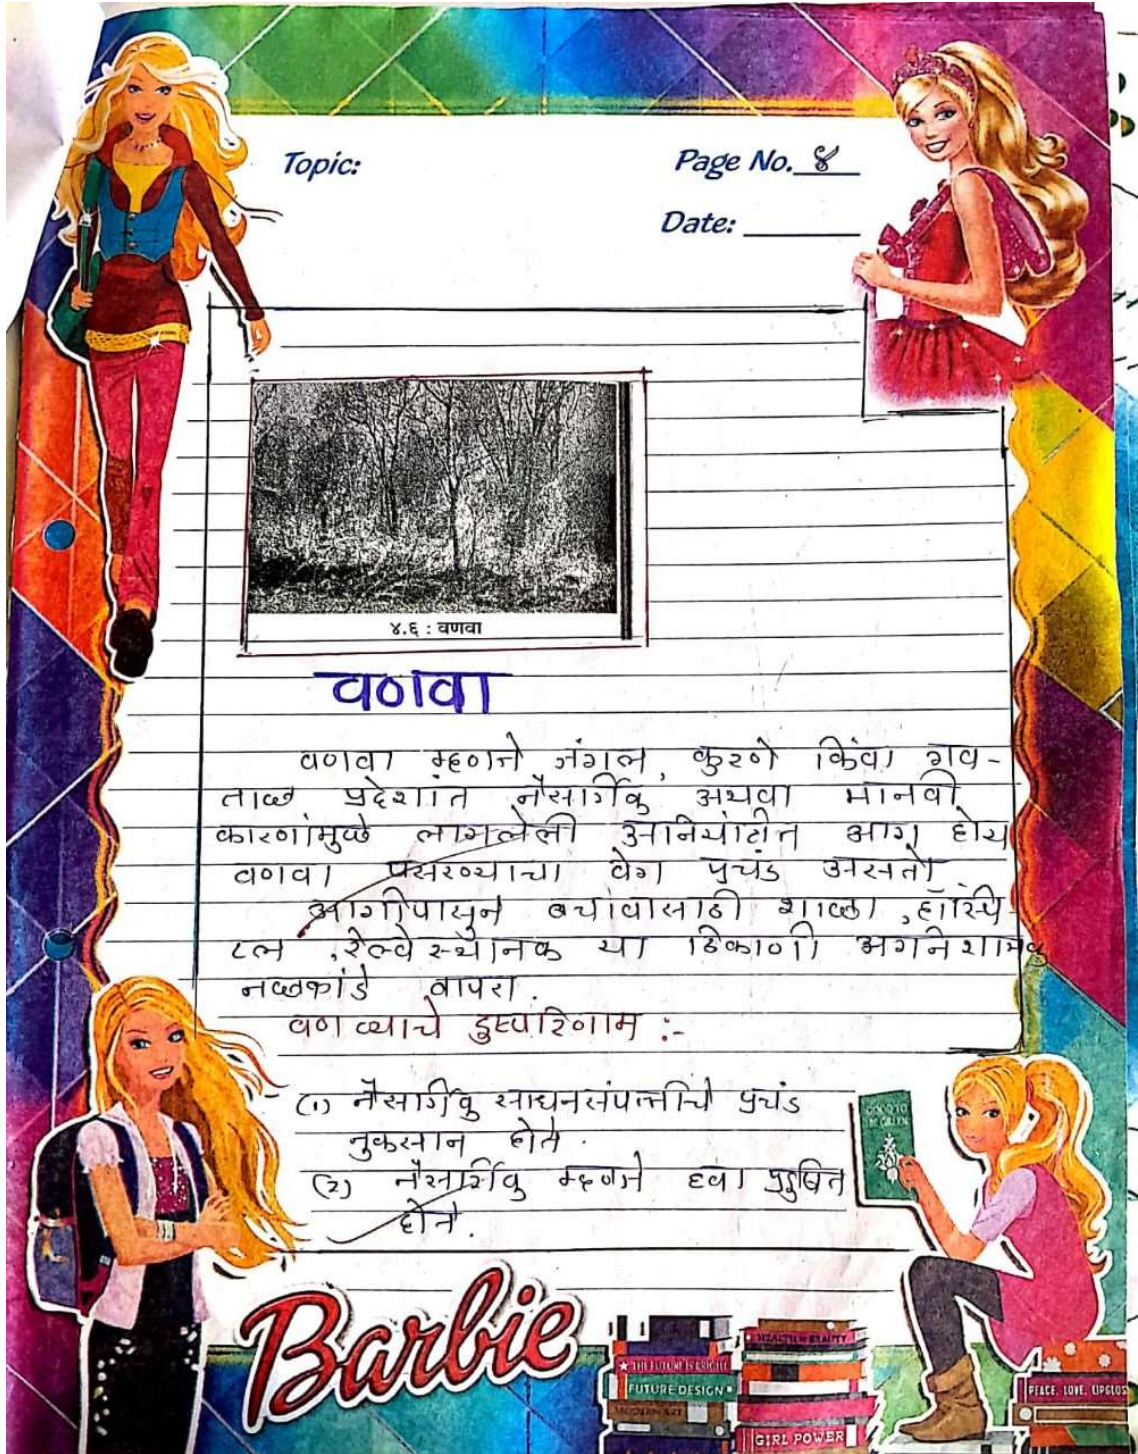 Topic:
Page No. 8
Date:
४.६ : वणवा
वणवा
वणवा म्हणजे जंगल, कुरणे किंवा गव-
ताळ प्रदेशांत नैसर्गिक अथवा मानवी
कारणांमुळे लागलेली अनियंत्रीत आग होय
वणवा पसरण्याचा वेग प्रचंड असतो
आगीपासुन बचावासाठी शाळा, हॉस्पि-
टल, रेल्वेस्थानक या ठिकाणी अग्नेशामक
नळकांडे वापरा.
वणव्याचे दुष्परिणाम :-
(१) नैसर्गिक साधनसंपत्तीचे प्रचंड
नुकसान होते.
(२) नैसर्गिक म्हणजे हवा प्रदुषित
होते.
GOOD TO
BE GREEN
Barbie
HEALTH & BEAUTY
THE FUTURE IS BRIGHT
FUTURE DESIGN
MODERN ART
GIRL POWER
PEACE, LOVE, LIPGLOSS